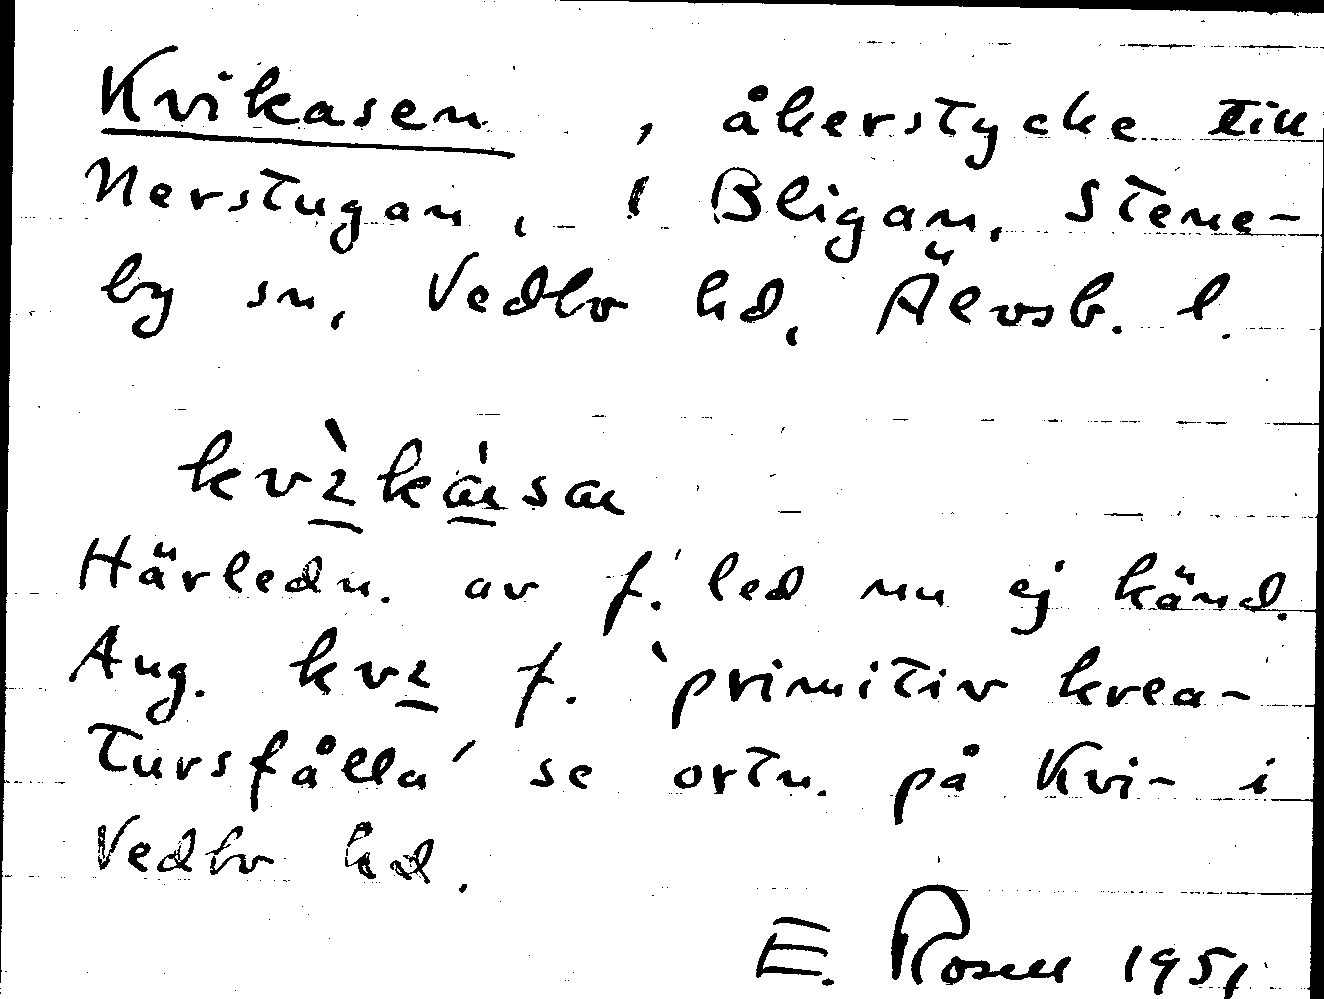 Kvikasen, åkerstycke till
Nerstugan, i Bligan, Stene-
by sn, Vedbo hd, Älvsb. l.
Härledn. av f. led nu ej känd.
Ang. kvɩ f. `primitiv krea-
tursfålla´ se ortn. på Kvi- i
Vedbo hd.
E. Rosell 1951